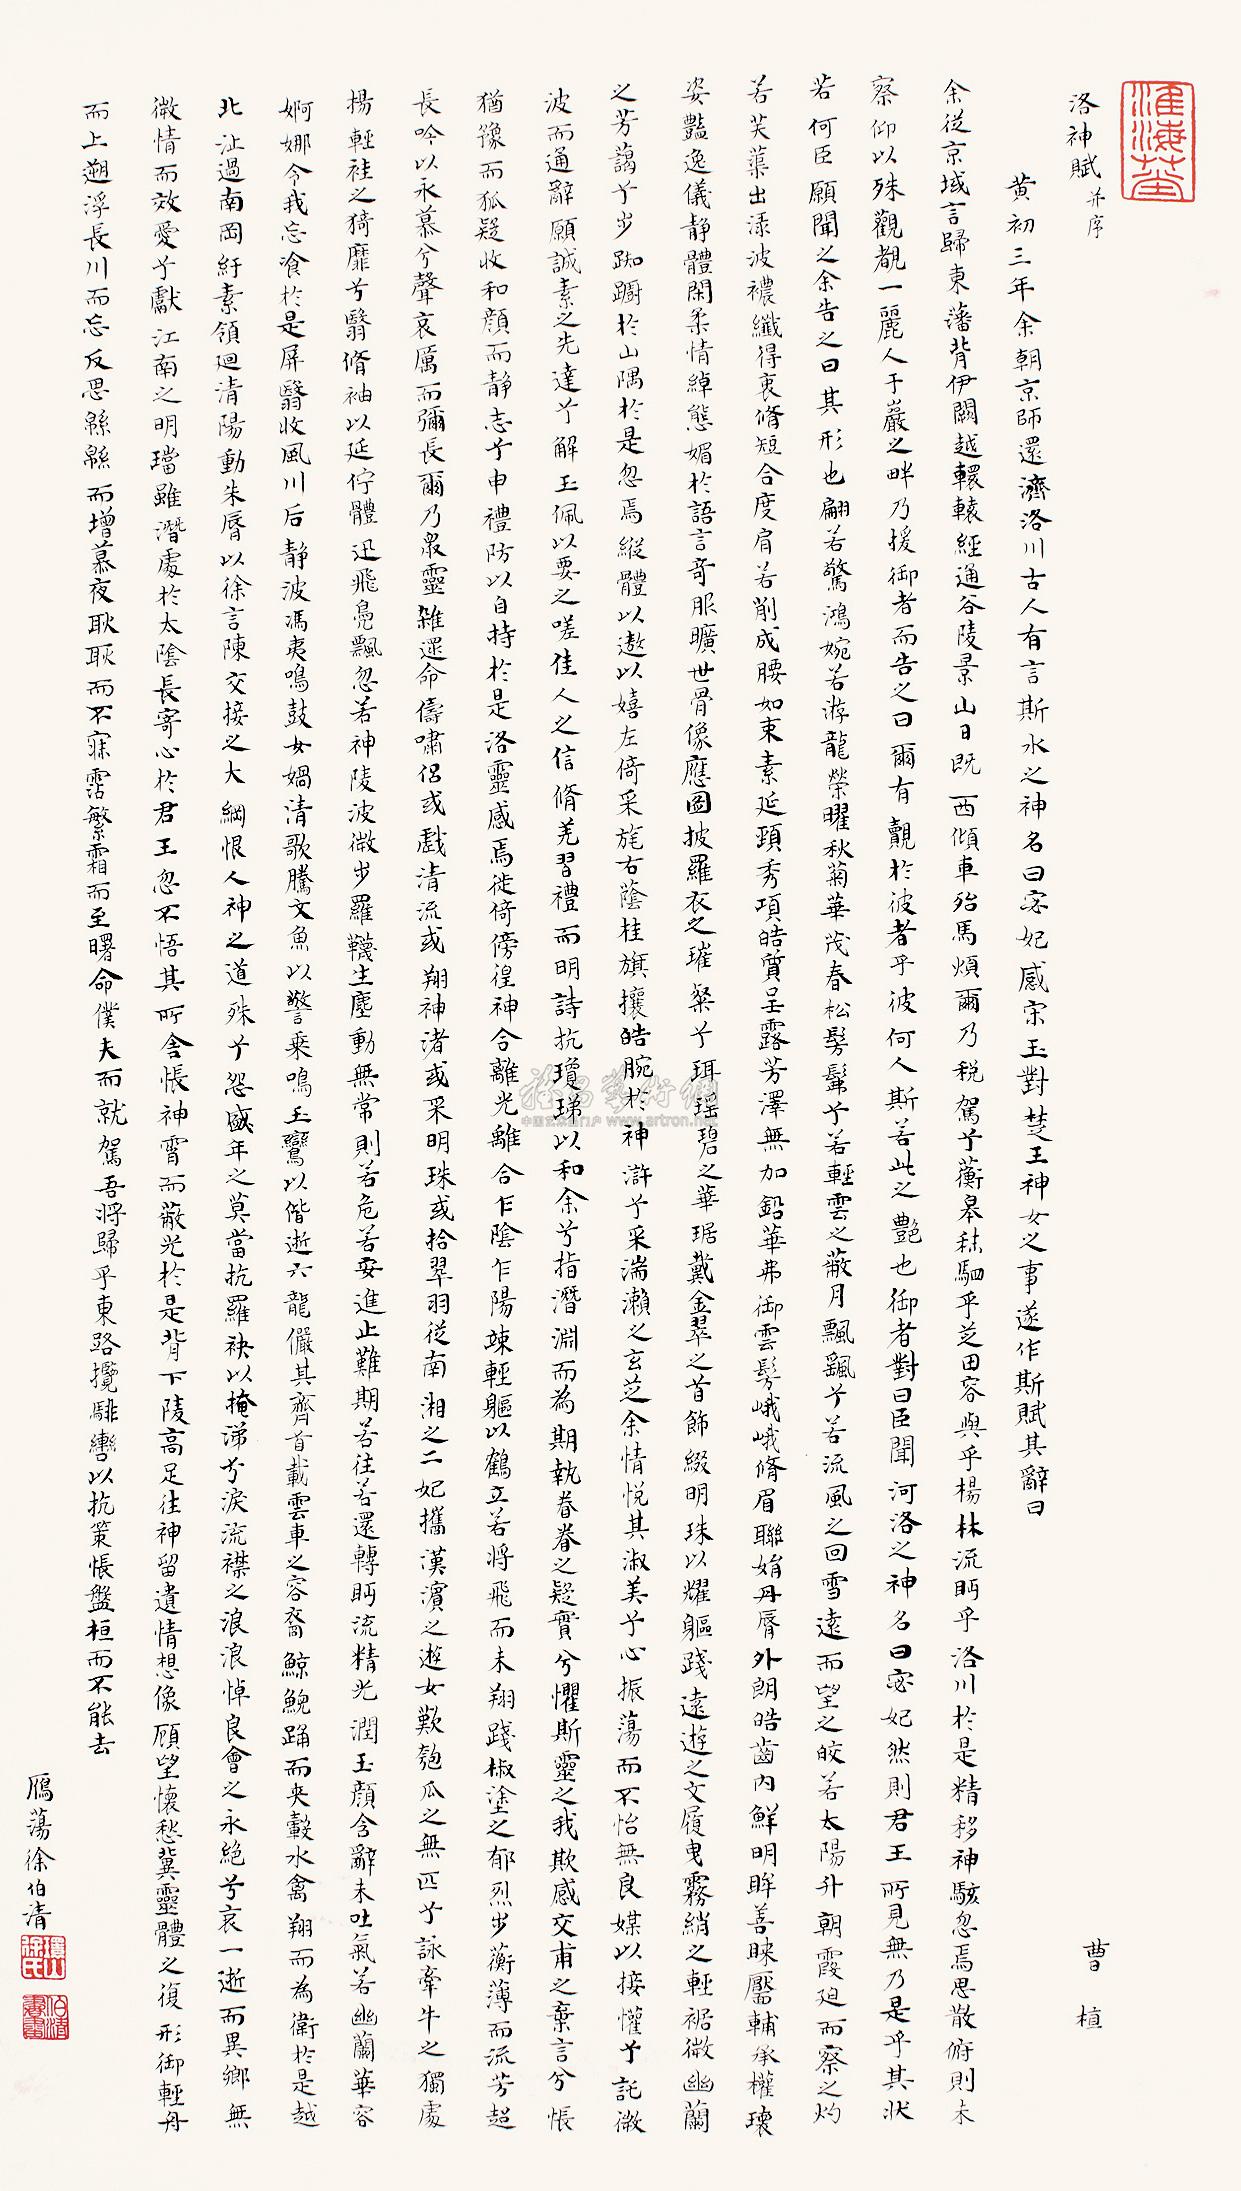 洛神賦 并序
曹植
黃初三年余朝京師還濟洛川古人有言斯水之神名曰宓妃感宋玉對楚王神女之事遂作斯賦其辭曰
余從京域言歸東藩背伊闕越轘轅經通谷陵景山日既西傾車殆馬煩爾乃稅駕乎蘅皋秣駟乎芝田容與乎楊林流眄乎洛川於是精移神駭忽焉思散俯則未
察仰以殊觀覩一麗人于巖之畔乃援御者而告之曰爾有覿於彼者乎彼何人斯若此之艷也御者對曰臣聞河洛之神名曰宓妃然則君王所見無乃是乎其狀
若何臣願聞之余告之曰其形也翩若驚鴻婉若游龍榮曜秋菊華茂春松髣髴兮若輕雲之蔽月飄飖兮若流風之回雪遠而望之皎若太陽升朝霞迫而察之灼
若芙蕖出淥波襛纖得衷脩短合度肩若削成腰如束素延頸秀項皓質呈露芳澤無加鉛華弗御雲髻峨峨脩眉聯娟丹脣外朗皓齒內鮮明眸善睞靨輔承權瓌
姿豔逸儀静體閑柔情綽態媚於語言奇服曠世骨像應圖披羅衣之璀粲兮珥瑤碧之華琚戴金翠之首飾綴明珠以耀軀踐遠遊之文履曳霧綃之輕裾微幽蘭
之芳藹兮步踟躕於山隅於是忽焉縱體以遨以嬉左倚采旄右蔭桂旗攘皓腕於神滸兮采湍瀨之玄芝余情悅其淑美兮心振蕩而不怡無良媒以接懽兮託微
波而通辭願誠素之先達兮解玉佩以要之嗟佳人之信脩羌習禮而明詩抗瓊珶以和余兮指潛淵而為期執眷眷之疑實兮懼斯靈之我欺感交甫之棄言兮悵
猶豫而狐疑收和顏而静志兮申禮防以自持於是洛靈感焉徙倚傍徨神合離光離合乍陰乍陽竦輕軀以鶴立若將飛而未翔踐椒塗之郁烈步蘅薄而流芳超
長吟以永慕兮聲哀厲而彌長爾乃衆靈雜遝命儔嘯侶或戲清流或翔神渚或采明珠或拾翠羽從南湘之二妃攜漢濱之遊女歎匏瓜之無匹兮詠牽牛之獨處
揚輕袿之猗靡兮翳脩袖以延佇體迅飛鳧飄忽若神陵波微步羅韈生塵動無常則若危若安進止難期若往若還轉眄流精光潤玉顏含辭未吐氣若幽蘭華容
婀娜令我忘飡於是屏翳收風川后静波馮夷鳴鼓女媧清歌騰文魚以警乘鳴玉鸞以偕逝六龍儼其齊首載雲車之容裔鯨鯢踊而夾轂水禽翔而為衛於是越
北沚過南岡紆素領迴清陽動朱脣以徐言陳交接之大綱恨人神之道殊兮怨盛年之莫當抗羅袂以掩涕兮淚流襟之浪浪悼良會之永絕兮哀一逝而異鄉無
微情而效愛兮獻江南之明璫雖潛處於太陰長寄心於君王忽不悟其所舍悵神霄而蔽光於是背下陵高足往神留遺情想像顧望懷愁冀靈體之復形御輕舟
而上遡浮長川而忘反思緜緜而增慕夜耿耿而不寐霑繁霜而至曙命僕夫而就駕吾將歸乎東路攬騑轡以抗策悵盤桓而不能去
鴈蕩徐伯清
徐氏
伯清
www.artron.net